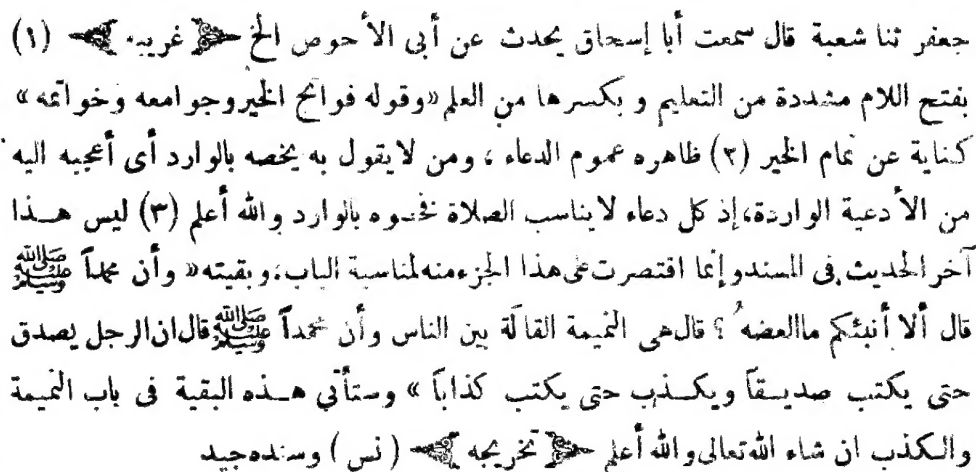 جعفر ثنا شعبة قال سمعت أبا إسحاق يحدث عن أبى الأحوص الخ ﴿ غريبه ﴾ (١)
بفتح اللام مشددة من التعليم و بكسرها من العلم «وقوله فواتح الخير وجوامعه وخواتمه»
كناية عن تمام الخير (٢) ظاهره عموم الدعاء ، ومن لا يقول به يخصه بالوارد أى أعجبه اليه
من الأدعية الواردة، إذ كل دعاء لا يناسب الصلاة فخصوه بالوارد والله أعلم (٣) ليس هـذا
آخر الحديث فى المسند و إنما اقتصرت على هذا الجزء منه لمناسبة الباب، و بقيته « وأن محمداً ﷺ
قال ألا أنبئكم ما العضهُ ؟ قال هى النميمة القالَة بين الناس وأن محمداً ﷺ قال ان الرجل يصدق
حتى يكتب صديـقاً ويكـذب حتى يكتب كذاباً » وستأتى هـذه البقية فى باب النميمة
والـكذب ان شاء الله تعالى والله أعلم ﴿ تخريجه ﴾ ( نس ) وسنده جيد